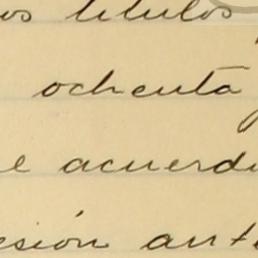 os titulos
ochenta
e acuerdo
esión ant